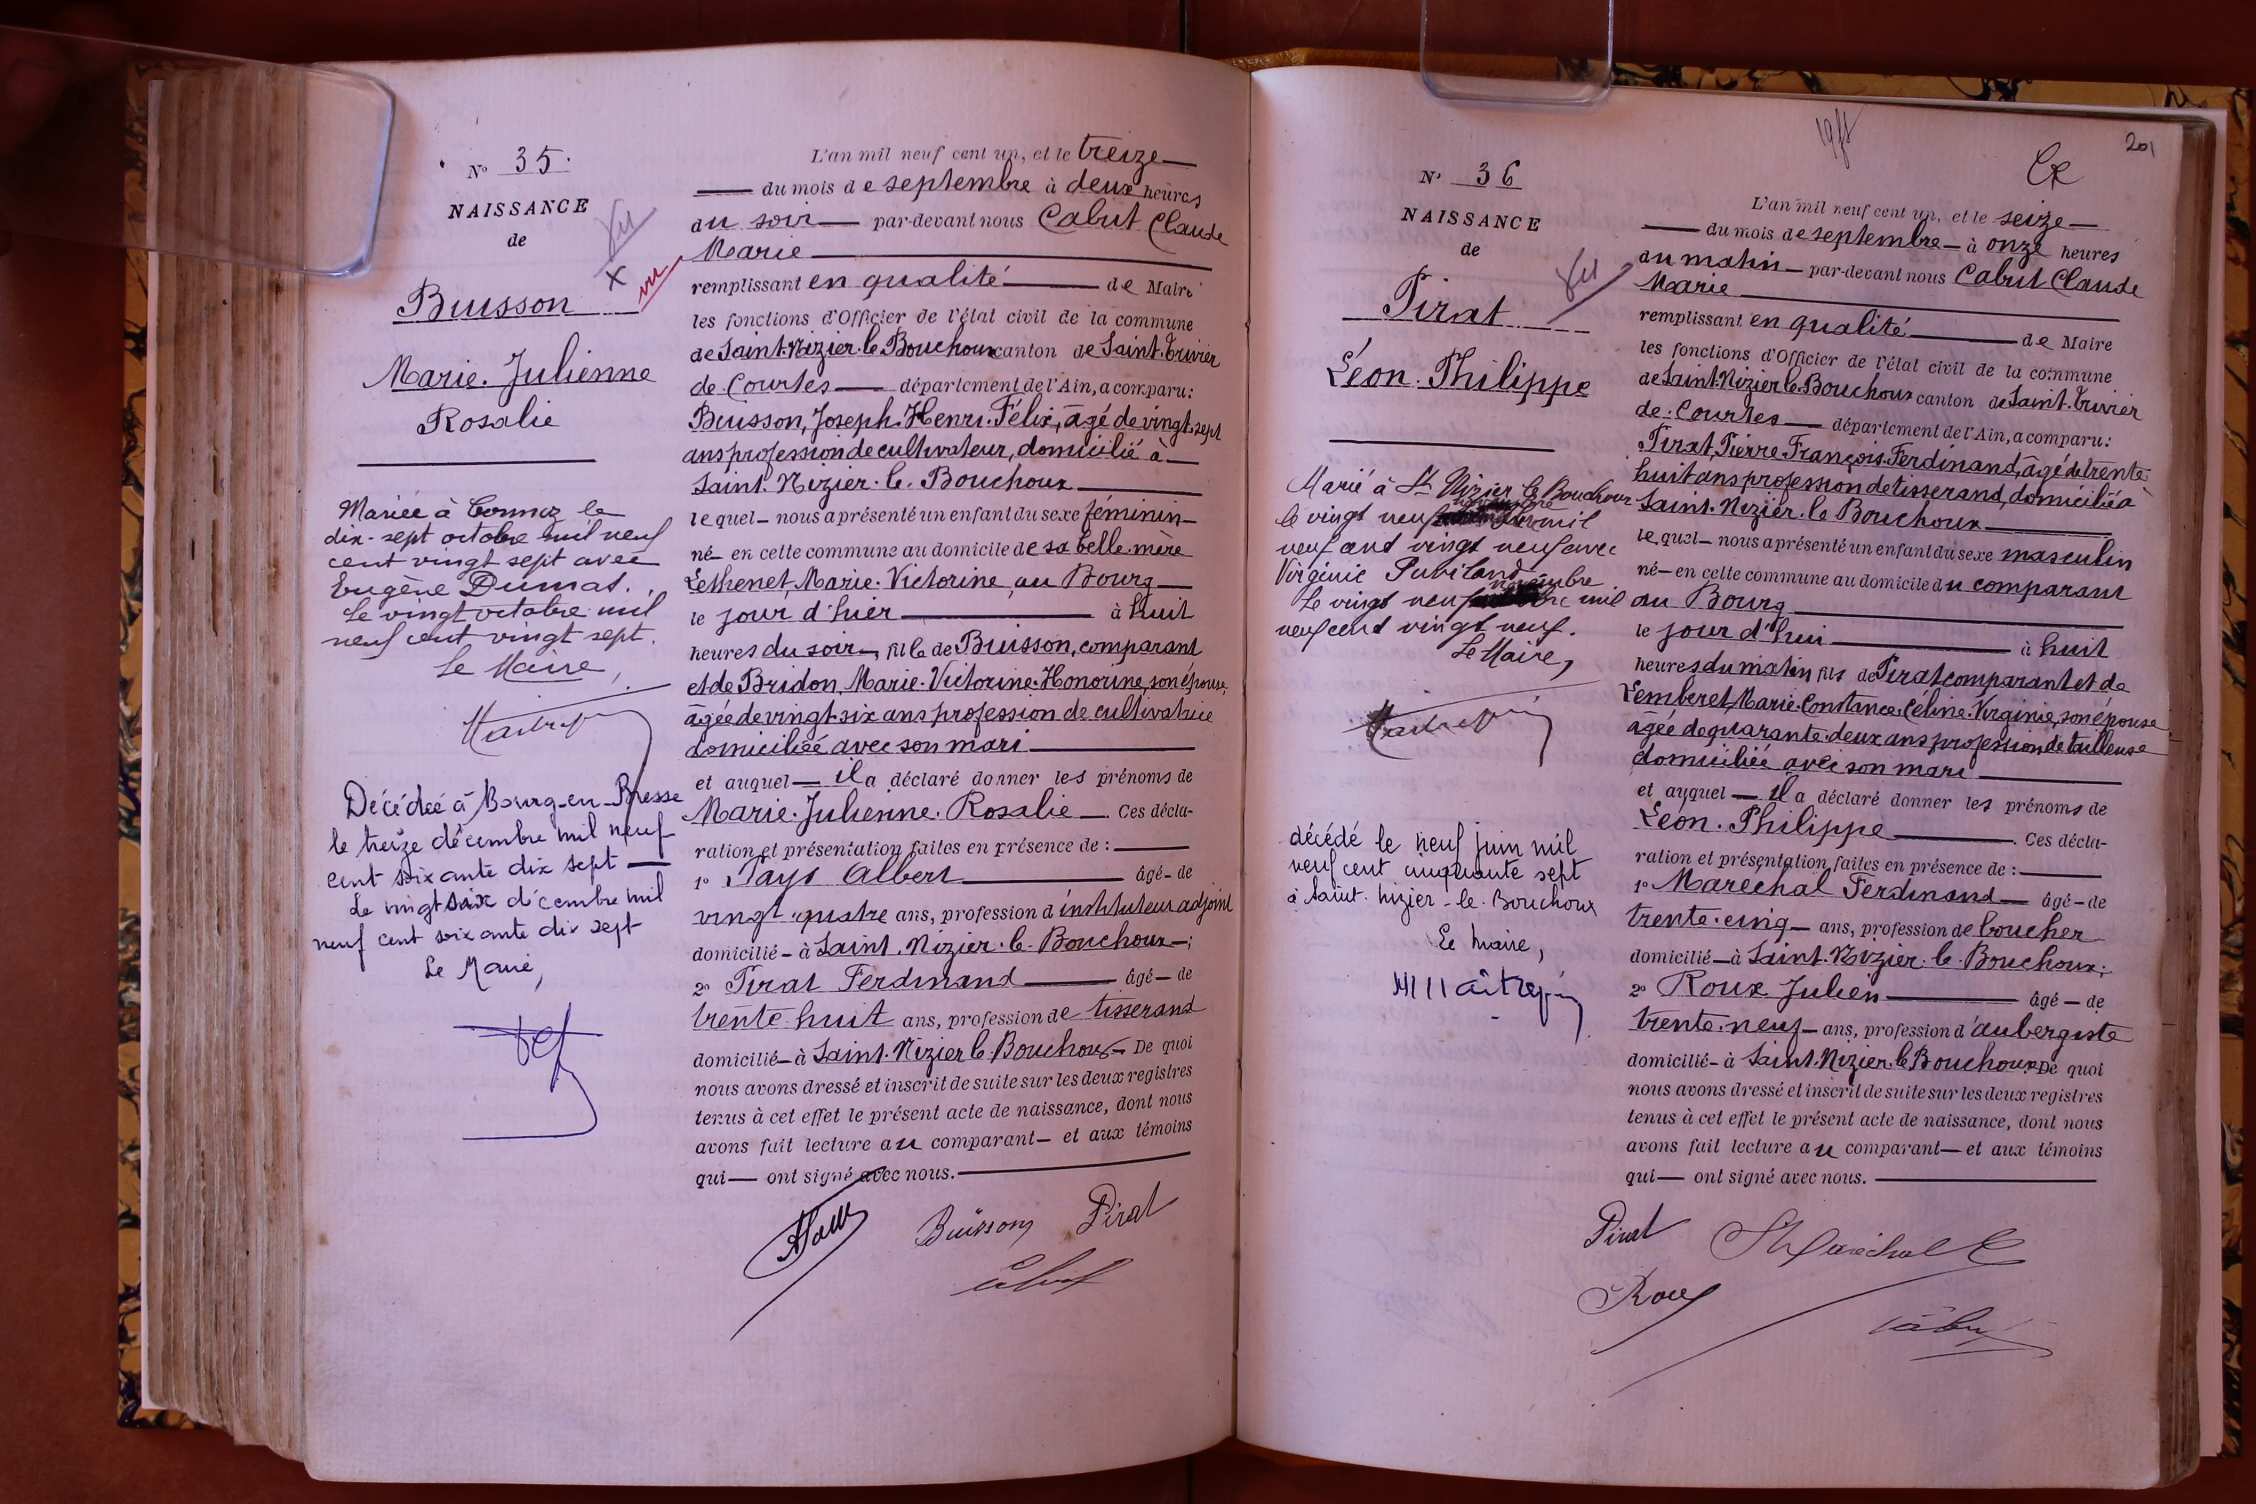 No 35.
NAISSANCE
de
Vu
x
vu
Buisson
Marie. Julienne
Rosalie
Mariée à Cormoz le
dix-sept octobre mil neuf
cent vingt sept avec
Eugène Dumas.
Le vingt octobre mil
neuf cent vingt sept.
Le Maire,
Décédée à Bourg-en-Bresse
le treize décembre mil neuf
cent soixante dix sept
Le vingt six décembre mil
neuf cent soixante dix sept
Le Maire,
L'an mil neuf cent un, et le treize
du mois de septembre à deux heures
du soir par-devant nous Cabut Claude
Marie
remplissant en qualité de Maire
les fonctions d'Officier de l'état civil de la commune
de Saint. Nizier. le Bouchoux canton de Saint. Trivier
de Courtes département de l'Ain, a comparu:
Buisson, Joseph. Henri. Félix, âgé de vingt-sept
ans profession de cultivateur, domicilié à
Saint. Nizier. le. Bouchoux
lequel nous a présenté un enfant du sexe féminin
né en cette commune au domicile de sa belle-mère
Lethenet, Marie. Victorine, au Bourg
le jour d'hier à huit
heures du soir, fille de Buisson, comparant
et de Bridon, Marie. Victorine. Honorine, son épouse,
âgée de vingt-six ans profession de cultivatrice
domiciliée avec son mari
et auquel il a déclaré donner les prénoms de
Marie. Julienne. Rosalie Ces décla-
ration et présentation faites en présence de :
1o Pays Albert âgé de
vingt-quatre ans, profession d'instituteur adjoint
domicilié à Saint. Nizier. le. Bouchoux;
2o Pirat Ferdinand âgé de
trente huit ans, profession de tisserand
domicilié à Saint. Nizier le. Bouchoux De quoi
nous avons dressé et inscrit de suite sur les deux registres
tenus à cet effet le présent acte de naissance, dont nous
avons fait lecture au comparant et aux témoins
qui ont signé avec nous.
Buisson Pirat
201
No 36
NAISSANCE
de
Vu
Pirat
Léon. Philippe
Marié à St Nizier le Bouchoux
le vingt neuf novembre mil
neuf cent vingt neuf avec
Virginie
novembre
Le vingt neuf mil
neuf cent vingt neuf.
Le Maire,
décédé le neuf juin mil
neuf cent cinquante sept
à Saint. Nizier-le-Bouchoux
Le Maire,
L'an mil neuf cent un, et le seize
du mois de septembre à onze heures
du matin par-devant nous Cabut Claude
Marie
remplissant en qualité de Maire
les fonctions d'Officier de l'état civil de la commune
de Saint. Nizier le. Bouchoux canton de Saint. Trivier
de. Courtes département de l'Ain, a comparu:
Pirat, Pierre. François. Ferdinand, âgé de trente-
huit ans profession de tisserand, domicilié à
Saint. Nizier. le Bouchoux
lequel nous a présenté un enfant du sexe masculin
né en cette commune au domicile du comparant
au Bourg
le jour d'hui à huit
heures du matin, fils de Pirat comparant et de
Lemberet, Marie. Constance. Céline. Virginie, son épouse
âgée de quarante. deux ans profession de tailleuse
domiciliée avec son mari
et auquel il a déclaré donner les prénoms de
Léon. Philippe Ces décla-
ration et présentation faites en présence de :
1o Maréchal Ferdinand âgé de
trente-cinq ans, profession de boucher
domicilié à Saint. Nizier. le. Bouchoux;
2o Roux Julien âgé de
trente-neuf ans, profession d'aubergiste
domicilié à Saint. Nizier. le Bouchoux De quoi
nous avons dressé et inscrit de suite sur les deux registres
tenus à cet effet le présent acte de naissance, dont nous
avons fait lecture au comparant et aux témoins
qui ont signé avec nous.
Pirat Maréchal
Roux